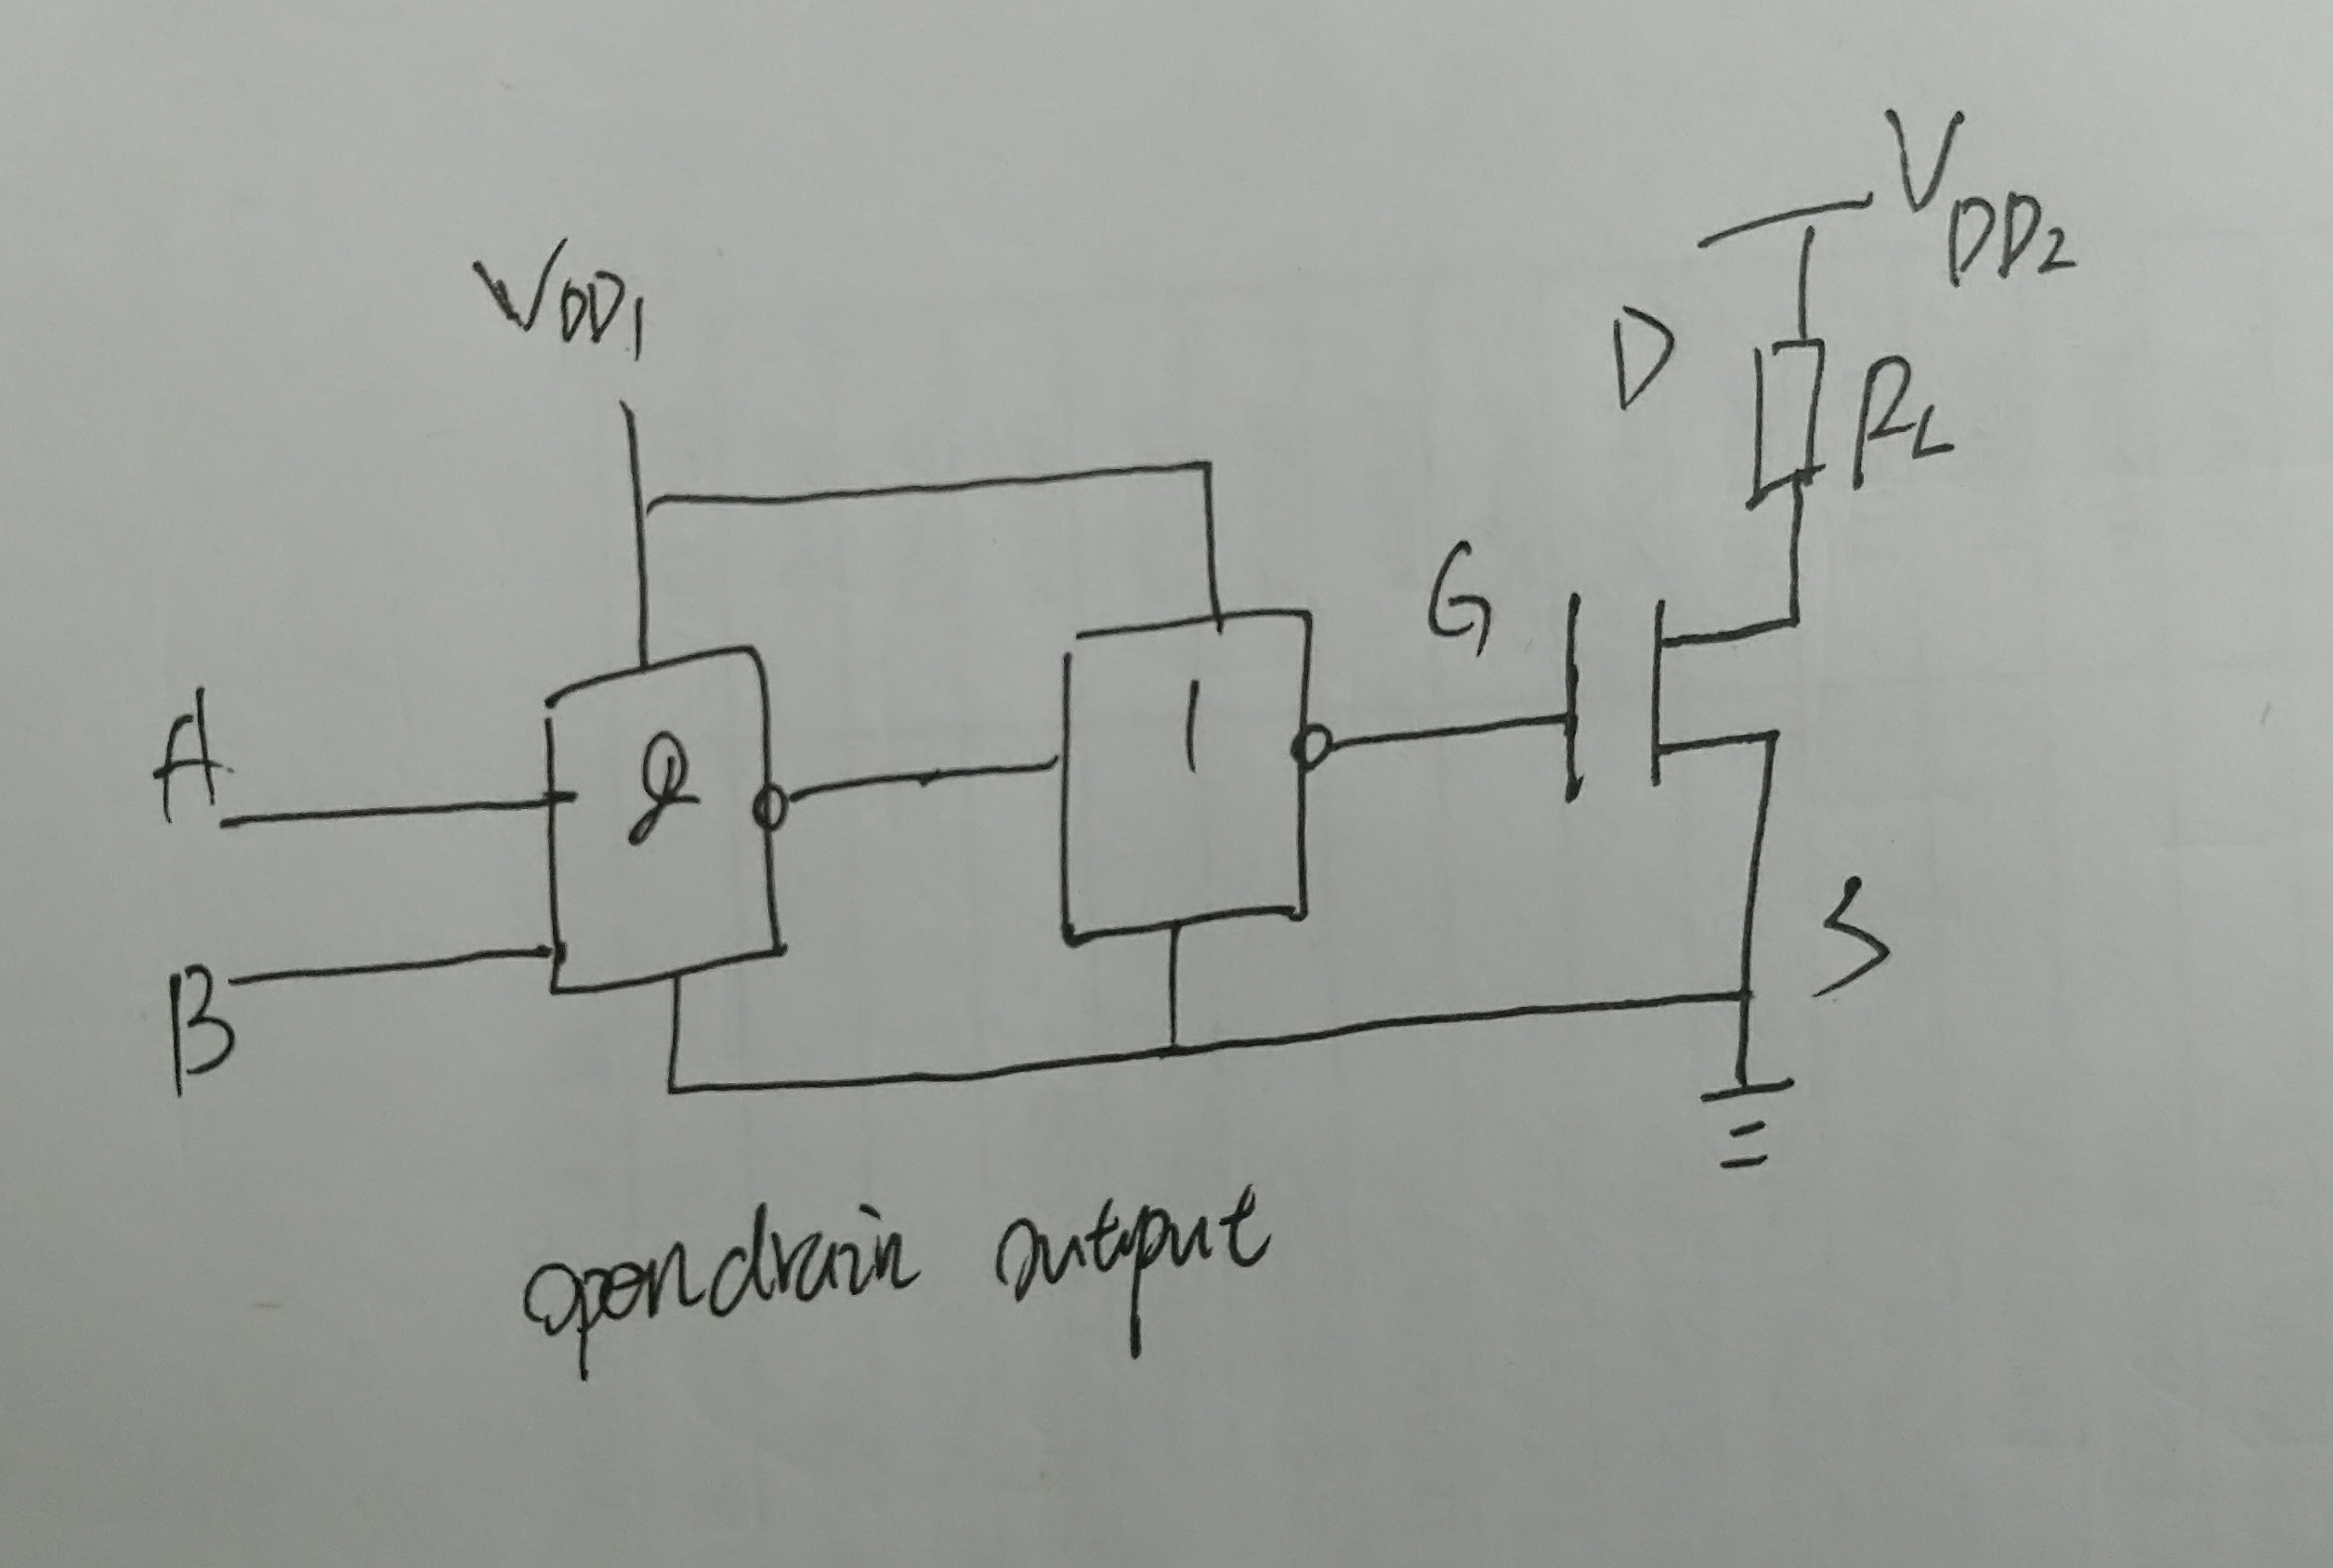 VDD2
VDD1
D
RL
G
A
&
1
B
S
open drain output